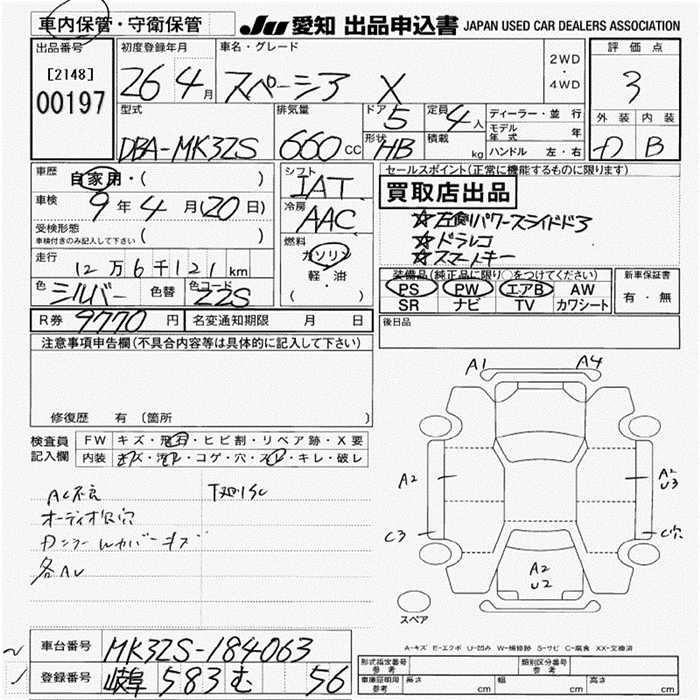 車内保管・守衛保管 JU 愛知 出品申込書 JAPAN USED CAR DEALERS ASSOCIATION
出品番号 初度登録年月 車名・グレード 2WD・4WD 評価点
[2148] 26 4月 スペーシア X 3
00197
型式 排気量 ドア 5 定員 4人 ディーラー・並行 外装 内装
DBA-MK32S 660cc 形状 HB 積載 kg モデル年式 年 D B
ハンドル 左・右
車歴 自家用・( ) シフト IAT セールスポイント(正常に機能するものに限ります)
車検 9年4月(20日) 冷房 AAC 買取店出品
受検形態 ( ) ☆左側パワースライドドア
車検付きのみ記入して下さい 燃料 ガソリン ☆ドラレコ
走行 12万6千121km 軽・油 ☆スマートキー
色 シルバー 色替 色コード Z2S ( ) 装備品(純正品に限り○をつけてください) 新車保証書
PS PW エアB AW 有・無
SR ナビ TV カワシート
R券 9770円 名変通知期限 月 日 後日品
注意事項申告欄(不具合内容等は具体的に記入して下さい)
修復歴 有 (箇所
検査員記入欄 FW キズ・飛石・ヒビ割・リペア跡・X要
内装 キズ・汚れ・コゲ・穴・スレ・キレ・破レ
AC不良 下廻りSC
オーディオ仮穴
各ヘレ
A1 A4
A2 A2 U3
C3 C穴
A2 U2
スペア
A-キズ E-エクボ U-凹み W-補修跡 S-サビ C-腐食 XX-交換済
車台番号 MK32S-184063
登録番号 岐阜 583 む 56
形式指定番号 参考 類別区分番号 参考
車庫証明用 参考 長さ cm 幅 cm 高さ cm